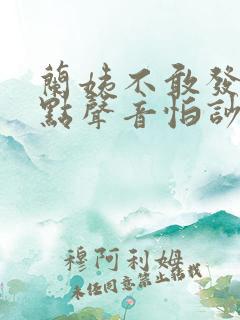 蘭姨不敢發
點聲音怕訬
穆阿利姆
未經同意禁止轉載